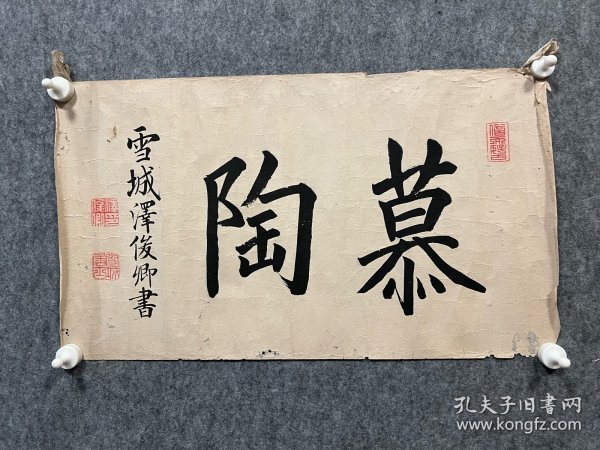 慕陶
雪城澤俊卿書
孔夫子旧書网
www.kongfz.com